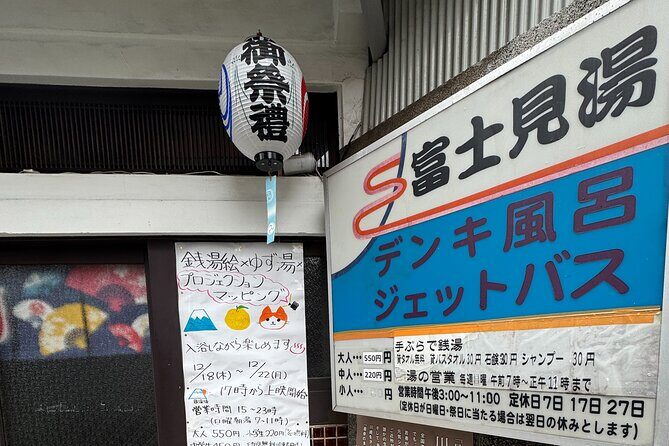 御祭禮
富士見湯
デンキ風呂
ジェットバス
手ぶらで銭湯
貸タオル無料 貸バスタオル30円 石鹸30円 シャンプー 30円
大人… 550円
中人… 220円
小人… 円
湯の営業 毎週日曜 午前7時〜正午11時まで
営業時間午後3:00〜11:00 定休日7日 17日 27日
(定休日が日曜日・祭日に当たる場合は翌日の休みとします)
銭湯絵×ゆず湯×
プロジェクション
マッピング
入浴しながら楽しめます
12/18(木)〜12/22(月)
17時から上映開始
営業時間 15〜23時
大人 550円